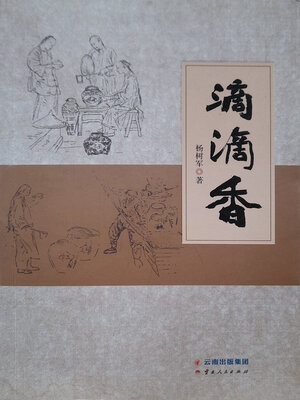 滴滴香
杨树军 著
云南出版集团
云南人民出版社